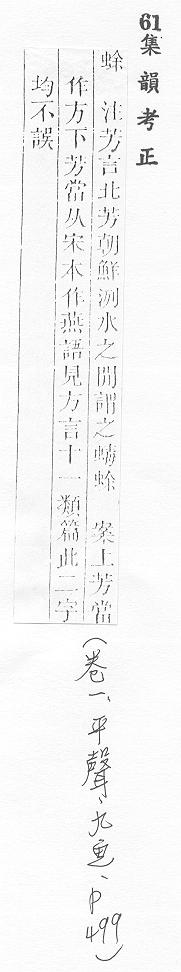 61集韻考正
蜍　注芳言北芳朝鮮洌水之閒謂之蝳蜍　案上芳當
作方下芳當从宋本作燕語見方言十一類篇此二字
均不誤
(卷一、平聲、九魚、p499)